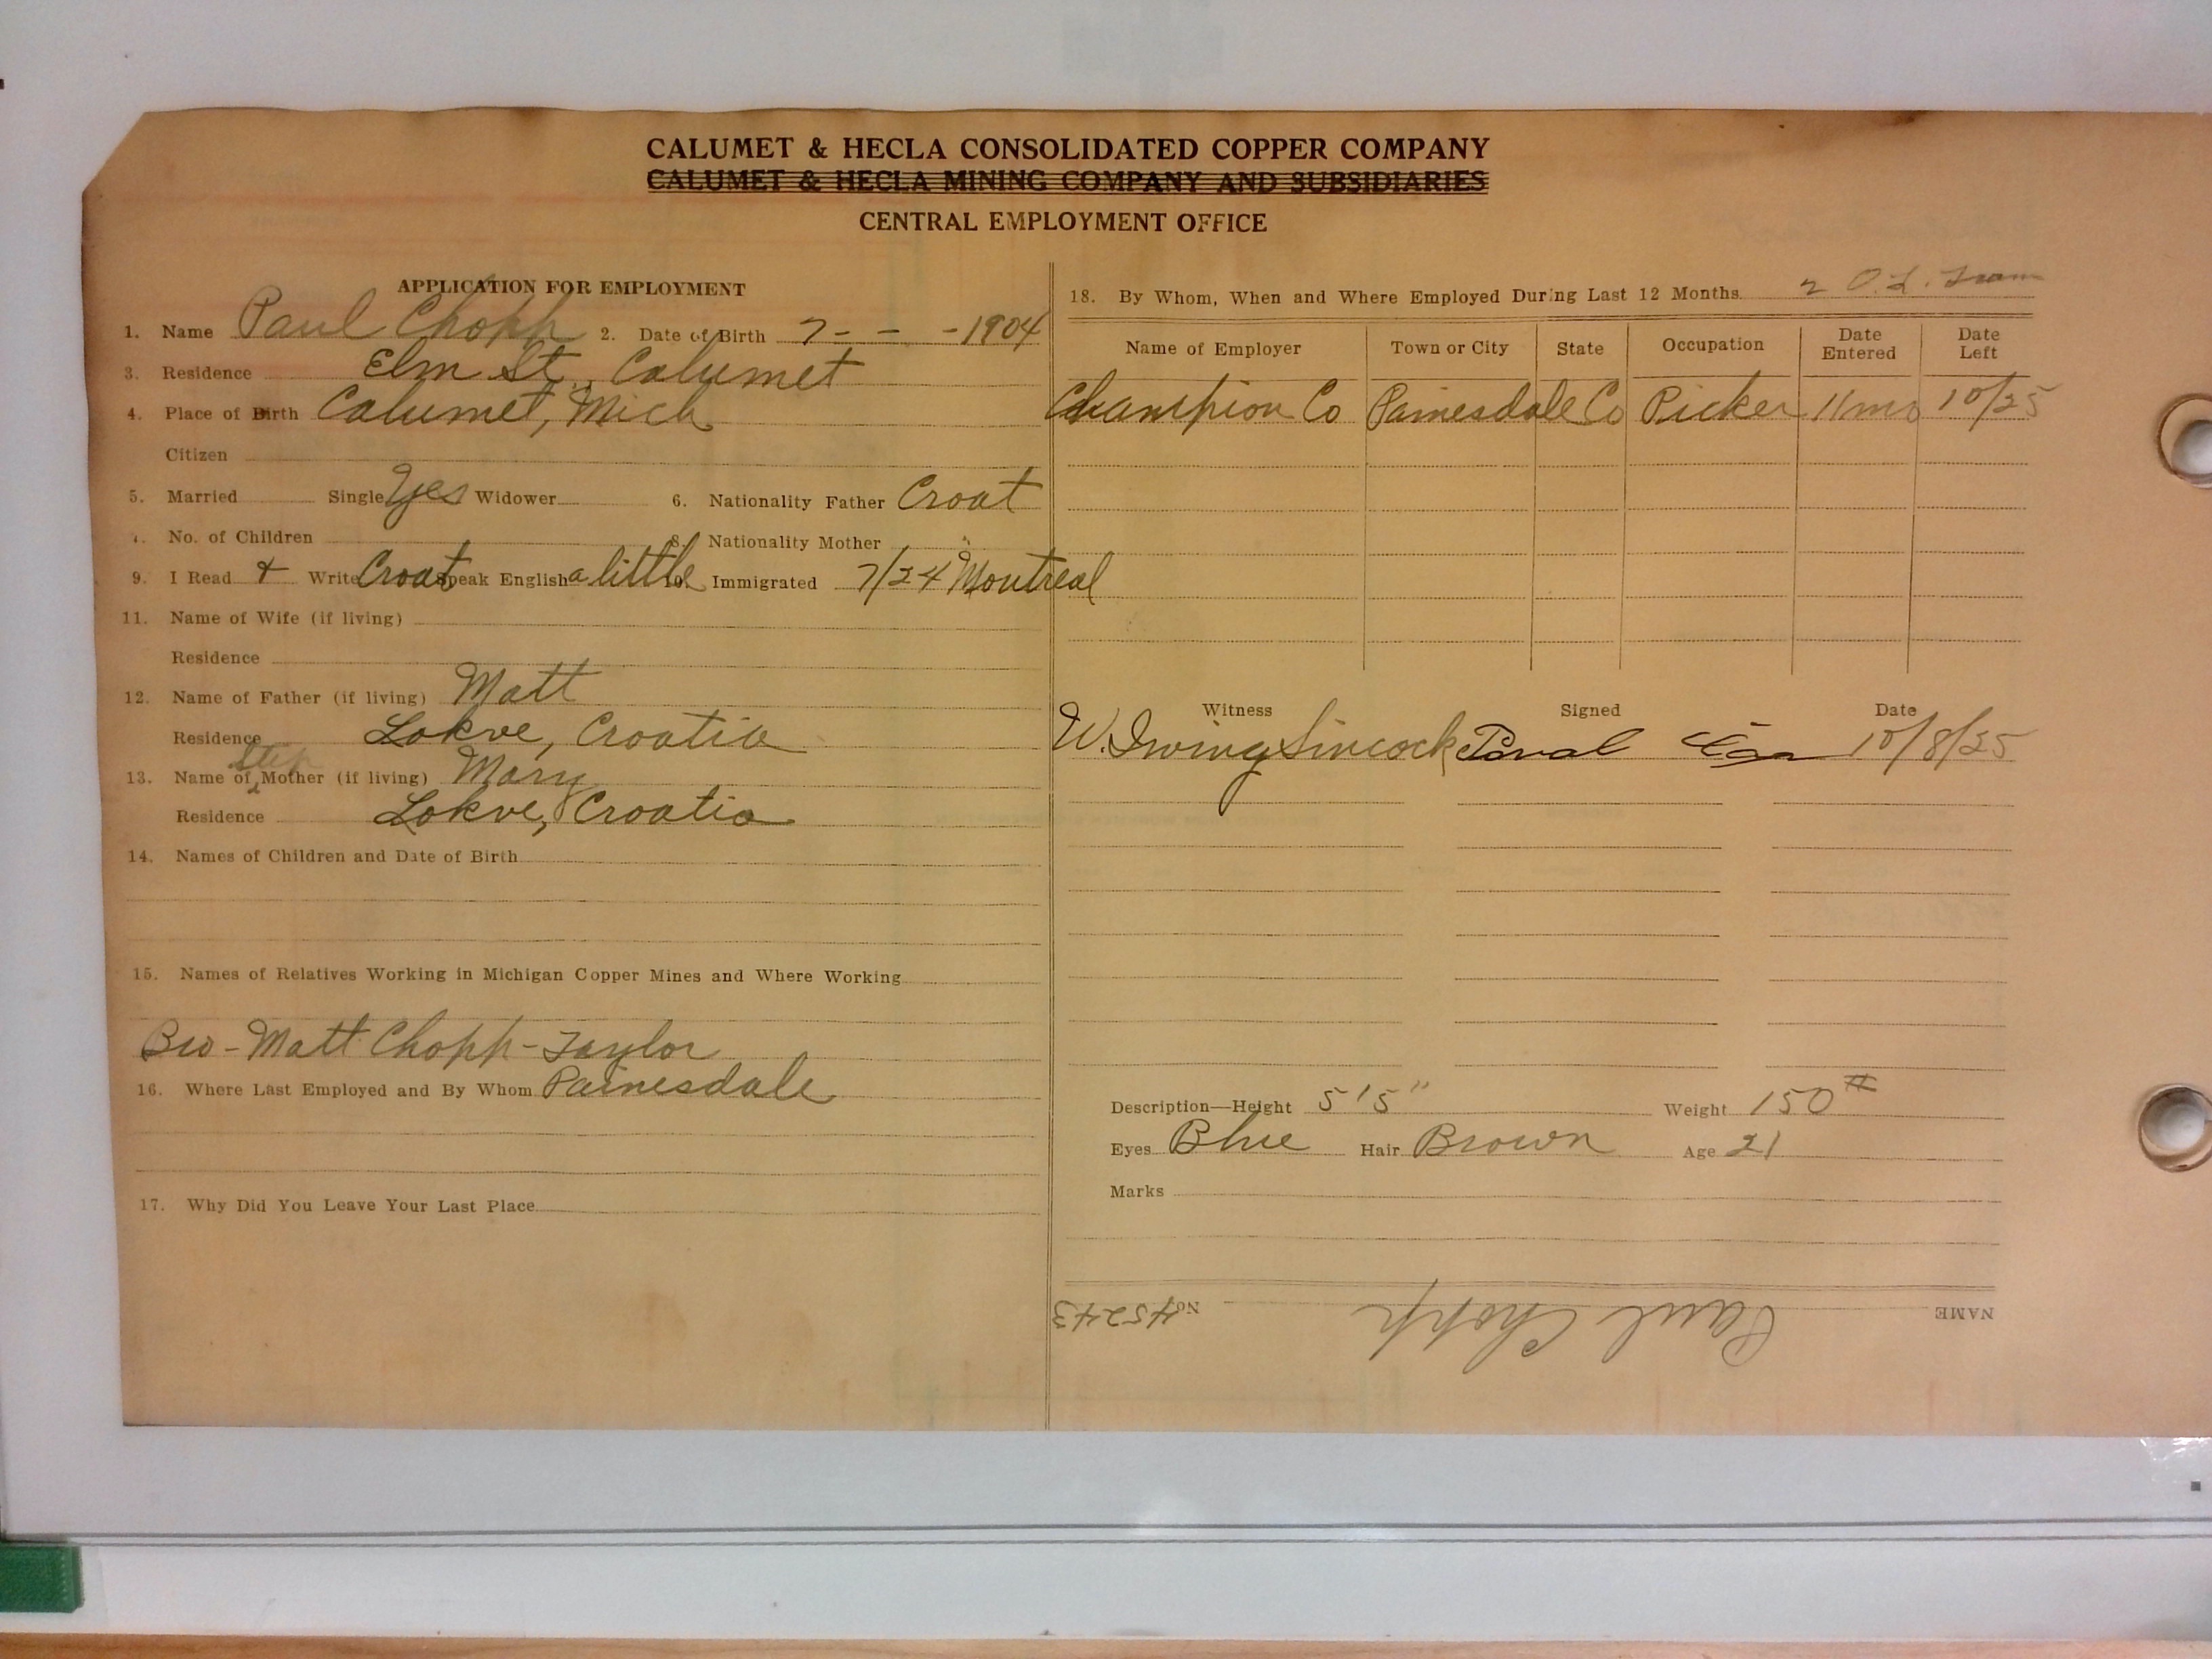 CALUMET & HECLA CONSOLIDATED COPPER COMPANY
CALUMET & HECLA MINING COMPANY AND SUBSIDIARIES
CENTRAL EMPLOYMENT OFFICE
APPLICATION FOR EMPLOYMENT
1. Name Paul Chopp 2. Date of Birth 7- - -1904
3. Residence Elm St, Calumet
4. Place of Birth Calumet, Mich
Citizen
5. Married Single Yes Widower 6. Nationality Father Croat
No. of Children 8. Nationality Mother "
9. I Read + Write Croat Speak English a little Immigrated 7/24 Montreal
11. Name of Wife (if living)
Residence
12. Name of Father (if living) Matt
Residence Lokve, Croatia
Step
13. Name of Mother (if living) Mary
Residence Lokve, Croatia
14. Names of Children and Date of Birth
15. Names of Relatives Working in Michigan Copper Mines and Where Working
Bro - Matt Chopp - Taylor
16. Where Last Employed and By Whom Painesdale
17. Why Did You Leave Your Last Place
18. By Whom, When and Where Employed During Last 12 Months 2 O.L. Tram
Name of Employer Town or City State Occupation Date Entered Date Left
Champion Co Painesdale Co Picker 11mo 10/25
Witness Signed Date
W. Irving Sincock 10/8/25
Description—Height 5'5" Weight 150#
Eyes Blue Hair Brown Age 21
Marks
NAME Paul Chopp No. 45243